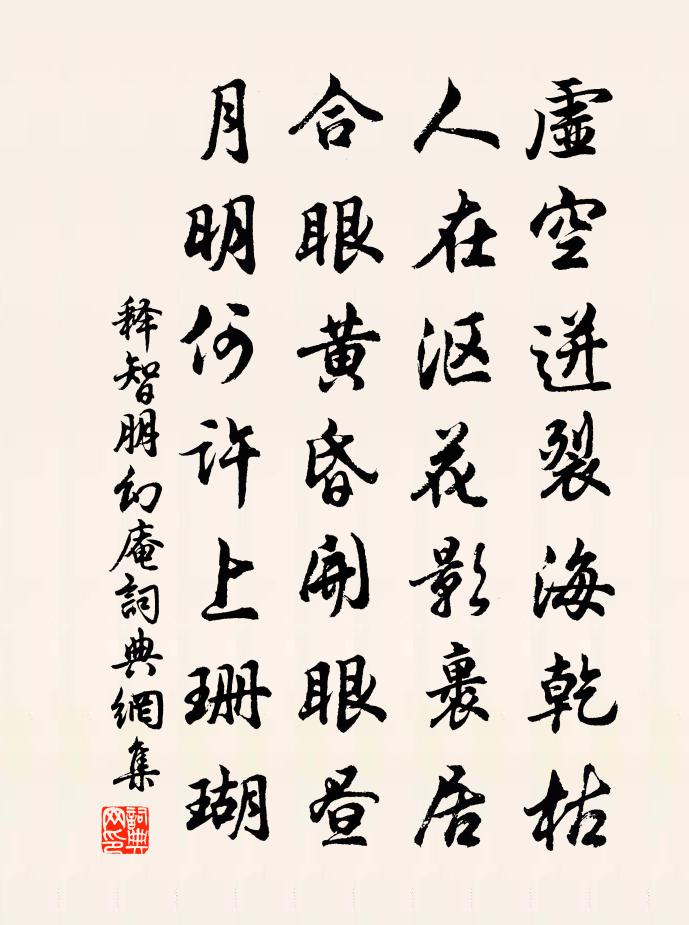 虛空迸裂海乾枯
人在漚花影裏居
合眼黄昏開眼昼
月明何許上珊瑚
释智朋幻庵詞典網集
詞典網印